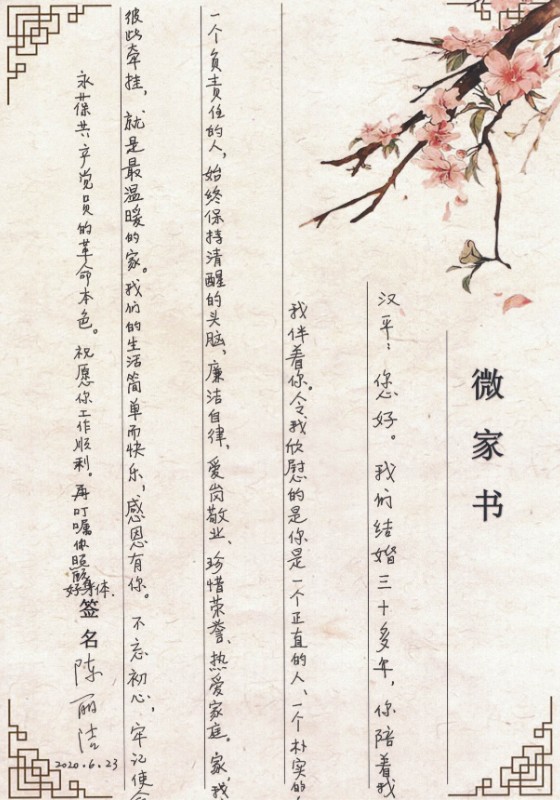 微家书
汉平：您好。我们结婚三十多年，你陪着我
我伴着你。令我欣慰的是你是一个正直的人、一个朴实的
一个负责任的人，始终保持清醒的头脑、廉洁自律、爱岗敬业、珍惜荣誉、热爱家庭。家，我
彼此牵挂，就是最温暖的家。我们的生活简单而快乐，感恩有你。不忘初心，牢记使命
永葆共产党员的革命本色。祝愿你工作顺利。再叮嘱你照顾好身体。
签名 陈丽洁
2020.6.23